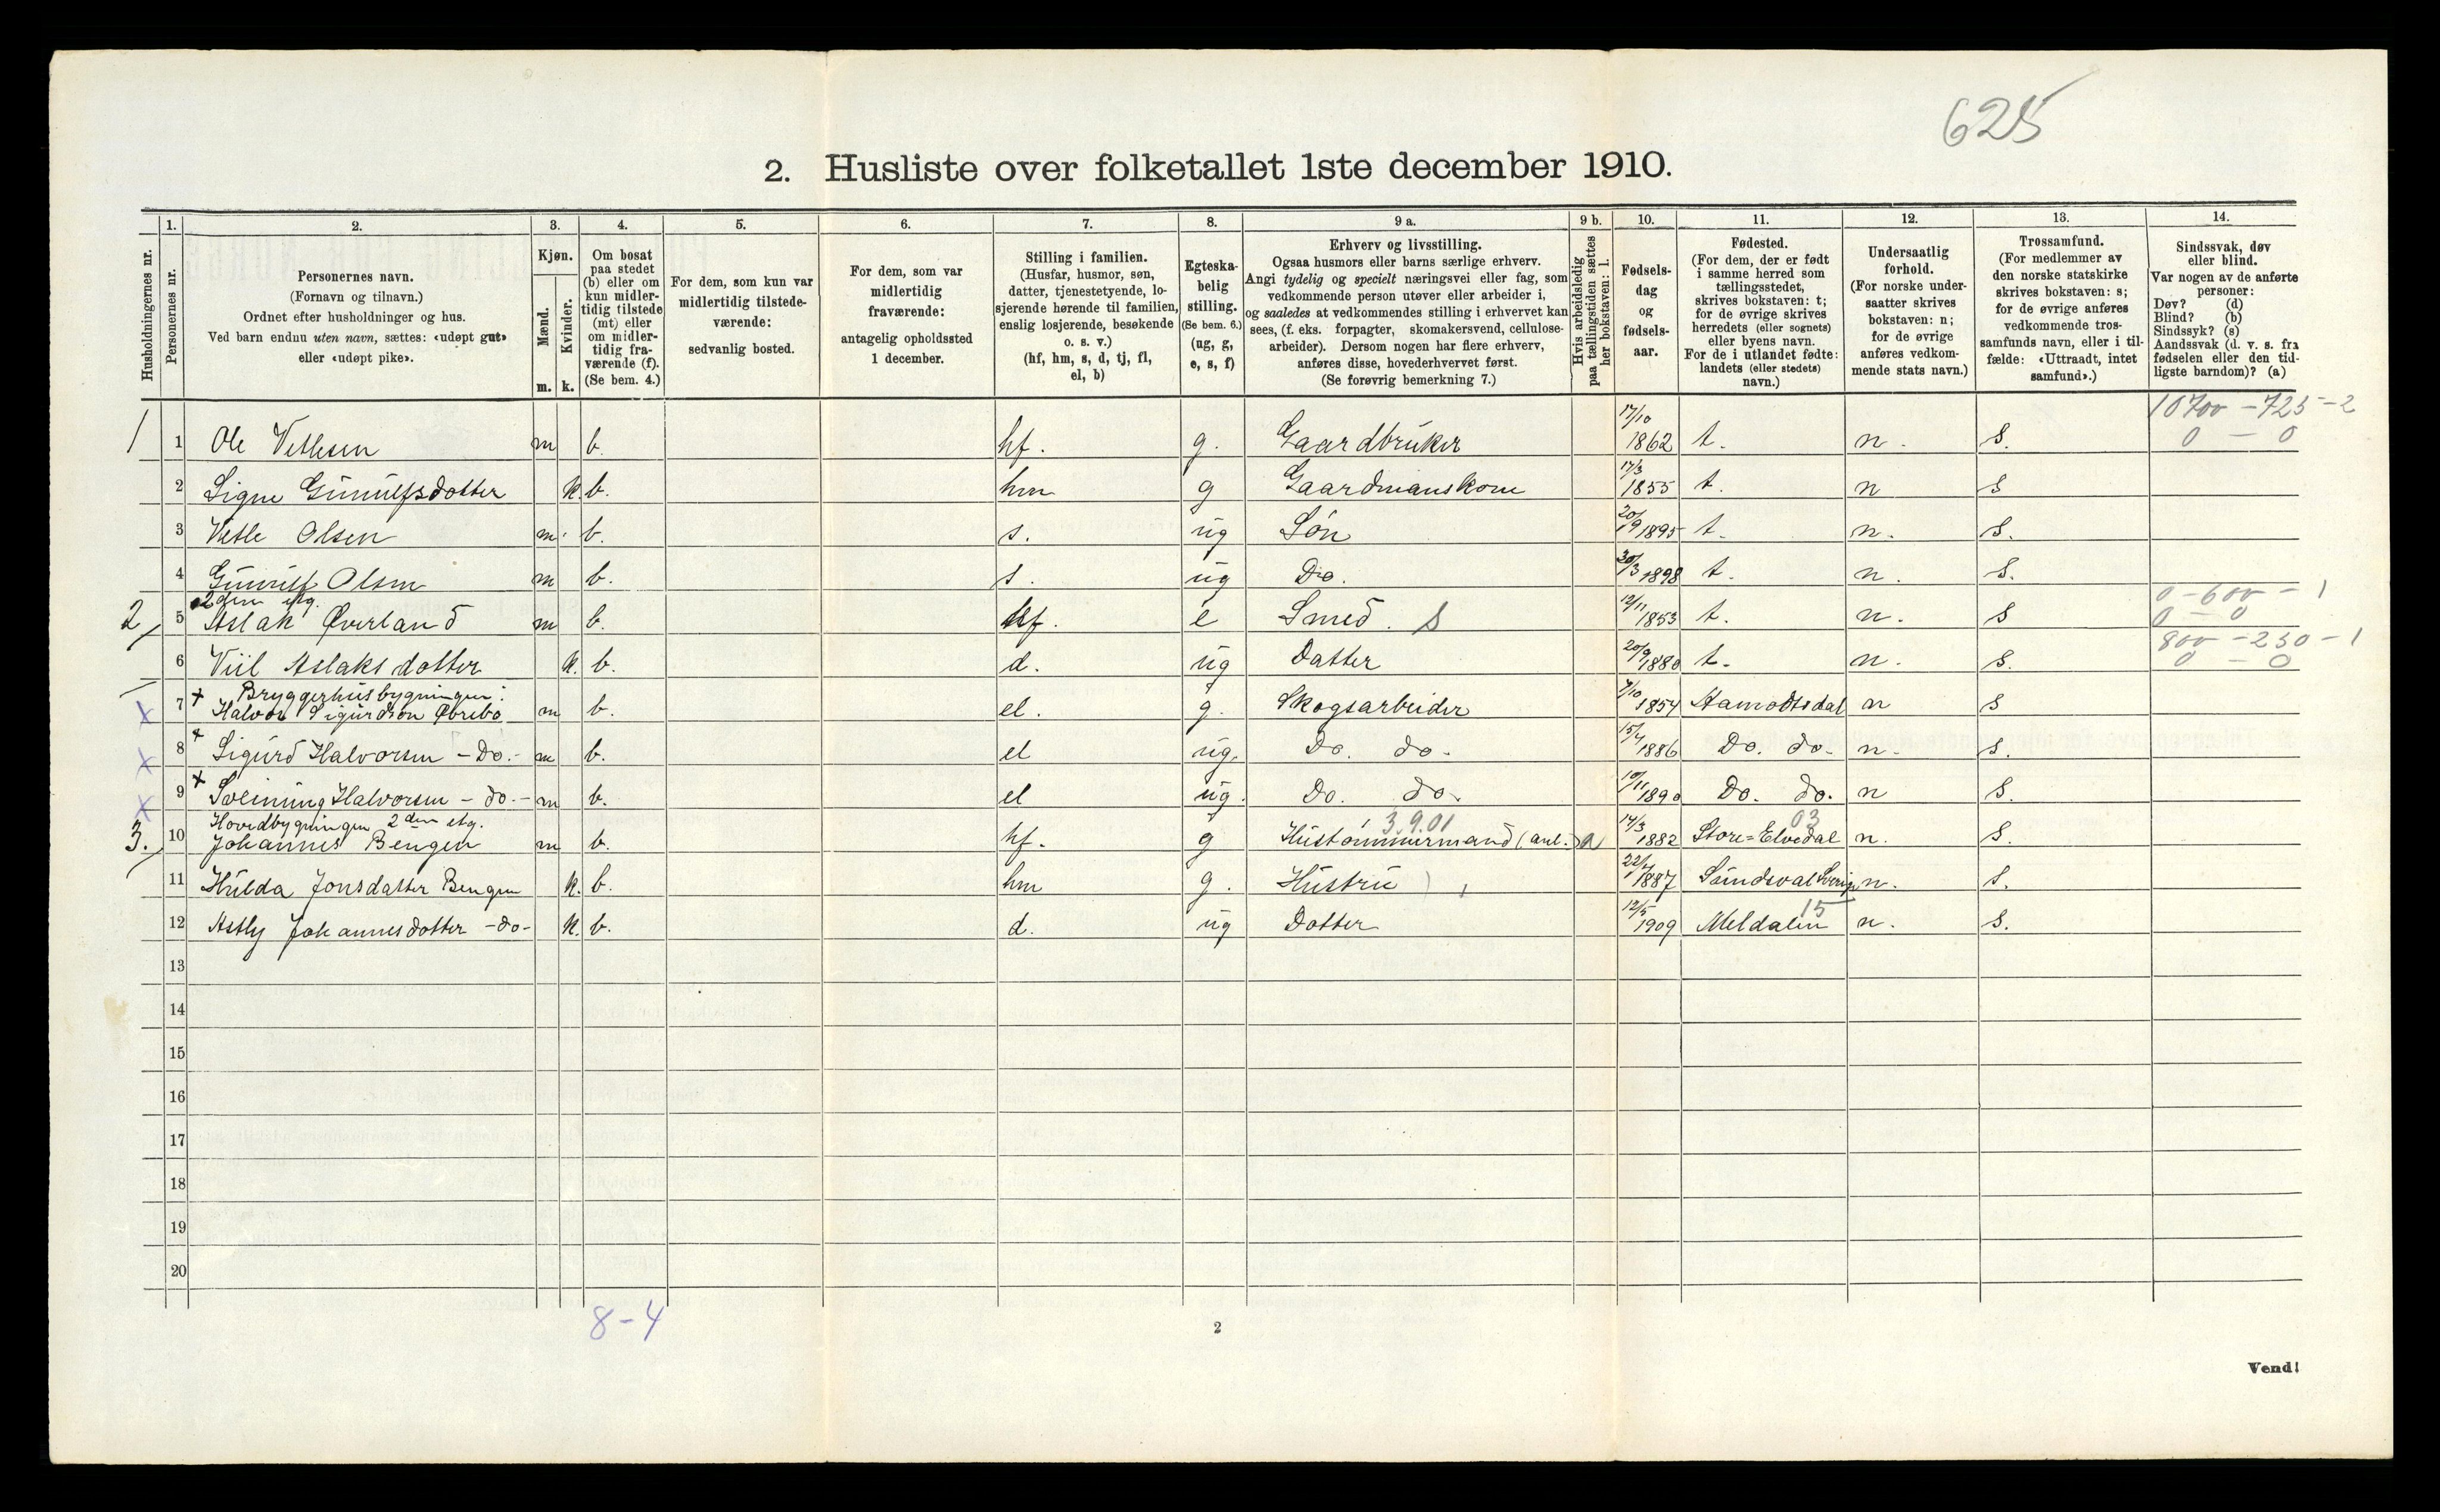 625
2. Husliste over folketallet 1ste december 1910.
Husholdningernes nr.
1. Personernes nr.
2. Personernes navn. (Fornavn og tilnavn.) Ordnet efter husholdninger og hus. Ved barn endnu uten navn, sættes: «udøpt gut» eller «udøpt pike».
3. Kjøn. Mænd. m. Kvinder. k.
4. Om bosat paa stedet (b) eller om kun midlertidig tilstede (mt) eller om midlertidig fraværende (f). (Se bem. 4.)
5. For dem, som kun var midlertidig tilstedeværende: sedvanlig bosted.
6. For dem, som var midlertidig fraværende: antagelig opholdssted 1 december.
7. Stilling i familien. (Husfar, husmor, søn, datter, tjenestetyende, losjerende hørende til familien, enslig losjerende, besøkende o. s. v.) (hf, hm, s, d, tj, fl, el, b)
8. Egteskabelig stilling. (Se bem. 6.) (ug, g, e, s, f)
9 a. Erhverv og livsstilling. Ogsaa husmors eller barns særlige erhverv. Angi tydelig og specielt næringsvei eller fag, som vedkommende person utøver eller arbeider i, og saaledes at vedkommendes stilling i erhvervet kan sees, (f. eks. forpagter, skomakersvend, cellulosearbeider). Dersom nogen har flere erhverv, anføres disse, hovederhvervet først. (Se forøvrig bemerkning 7.)
9 b. Hvis arbeidsledig paa tællingstiden sættes her bokstaven: l.
10. Fødselsdag og fødselsaar.
11. Fødested. (For dem, der er født i samme herred som tællingsstedet, skrives bokstaven: t; for de øvrige skrives herredets (eller sognets) eller byens navn. For de i utlandet fødte: landets (eller stedets) navn.)
12. Undersaatlig forhold. (For norske undersaatter skrives bokstaven: n; for de øvrige anføres vedkommende stats navn.)
13. Trossamfund. (For medlemmer av den norske statskirke skrives bokstaven: s; for de øvrige anføres vedkommende trossamfunds navn, eller i tilfælde: «Uttraadt, intet samfund».)
14. Sindssvak, døv eller blind. Var nogen av de anførte personer: Døv? (d) Blind? (b) Sindssyk? (s) Aandssvak (d. v. s. fra fødselen eller den tidligste barndom)? (a)
10700 - 725 - 2
1 1 Ole Vetlesen m b. hf. g. Gaardbruker 17/10 1862 t. n. S. 0 - 0
2 Signe Gunulfsdotter k. b. hm g Gaardmanskone 17/3 1855 t. n s
3 Vetle Olsen m. b. s. ug Søn 20/9 1895 t. n. S.
4 Gunulf Olsen m b. s. ug Do. 30/3 1898 t. n. S.
2den etg. 0 - 600 - 1
2 5 Aslak Øverland m b. hf. e Smed. S 12/11 1853 t. n. S 0 - 0
800 - 230 - 1
6 Viil Aslaksdotter k. b. d. ug Datter 20/9 1880 t. n. s. 0 - 0
Bryggerhusbygningen:
x 7 + Halvor Sigurdson Øvrebø m b. el. g. Skogsarbeider 7/10 1854 Hamodtsdal n s
x 8 + Sigurd Halvorsen - Do. - m b. el ug. Do. do. 15/4 1886 Do. do. n. s.
x 9 + Sveinung Halvorsen - do. - m b. el ug. Do. do. 10/11 1890 Do. do. n S.
Hovedbygningen 2den etg. 3.9.01 03
3. 10 Johannes Bengen m b. hf. g Hustømmermand (anl.) a 14/3 1882 Store=Elvedal n. S.
11 Hulda Jonsdatter Bengen k. b. hm g. Hustru 22/4 1887 Sundsval Sverige n. S.
15
12 Astly Johannesdotter - do - k. b. d. ug Dotter 12/5 1909 Meldalen n. S.
13
14
15
16
17
18
19
20
8-4
2
Vend!